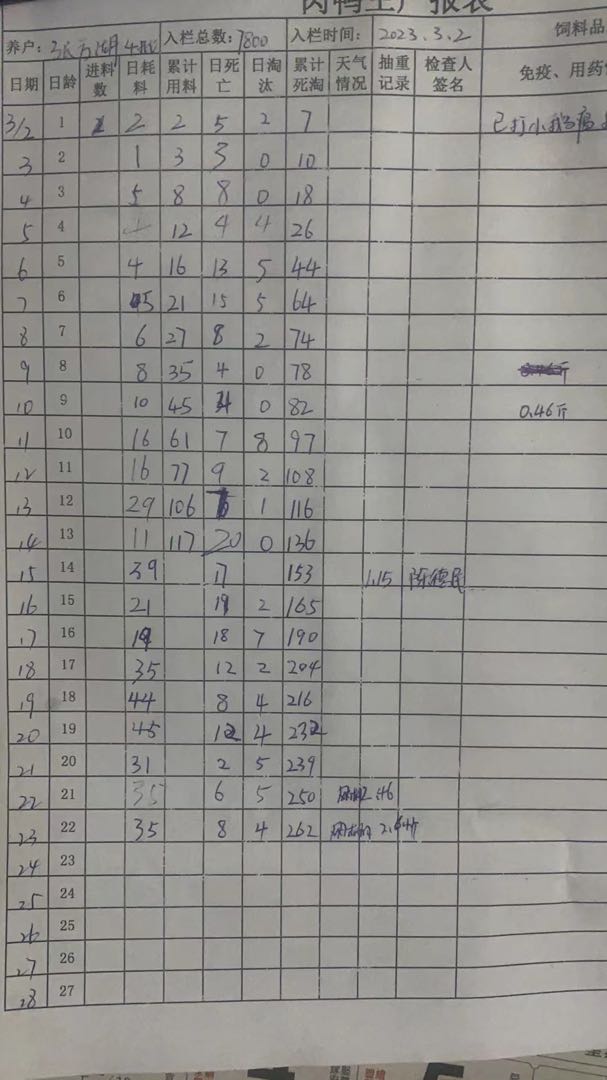 肉鸭生产报表
养户: 入栏总数: 7800 入栏时间: 2023.3.2 饲料品
日期 日龄 进料数 日耗料 累计用料 日死亡 日淘汰 累计死淘 天气情况 抽重记录 检查人签名 免疫、用药
3/2 1 2 2 5 2 7 已打小
3 2 1 3 3 0 10
4 3 5 8 8 0 18
5 4 12 4 4 26
6 5 4 16 13 5 44
7 6 5 21 15 5 64
8 7 6 27 8 2 74
9 8 8 35 4 0 78
10 9 10 45 4 0 82 0.46斤
11 10 16 61 7 8 97
12 11 16 77 9 2 108
13 12 29 106 1 116
14 13 11 117 20 0 136
15 14 39 17 153 1.15
16 15 21 2 165
17 16 18 7 190
18 17 35 12 2 204
19 18 44 8 4 216
20 19 45 12 4 232
21 20 31 2 5 239
22 21 35 6 5 250 2.46
23 22 35 8 4 262 2.64斤
24 23
25 24
26 25
27 26
28 27